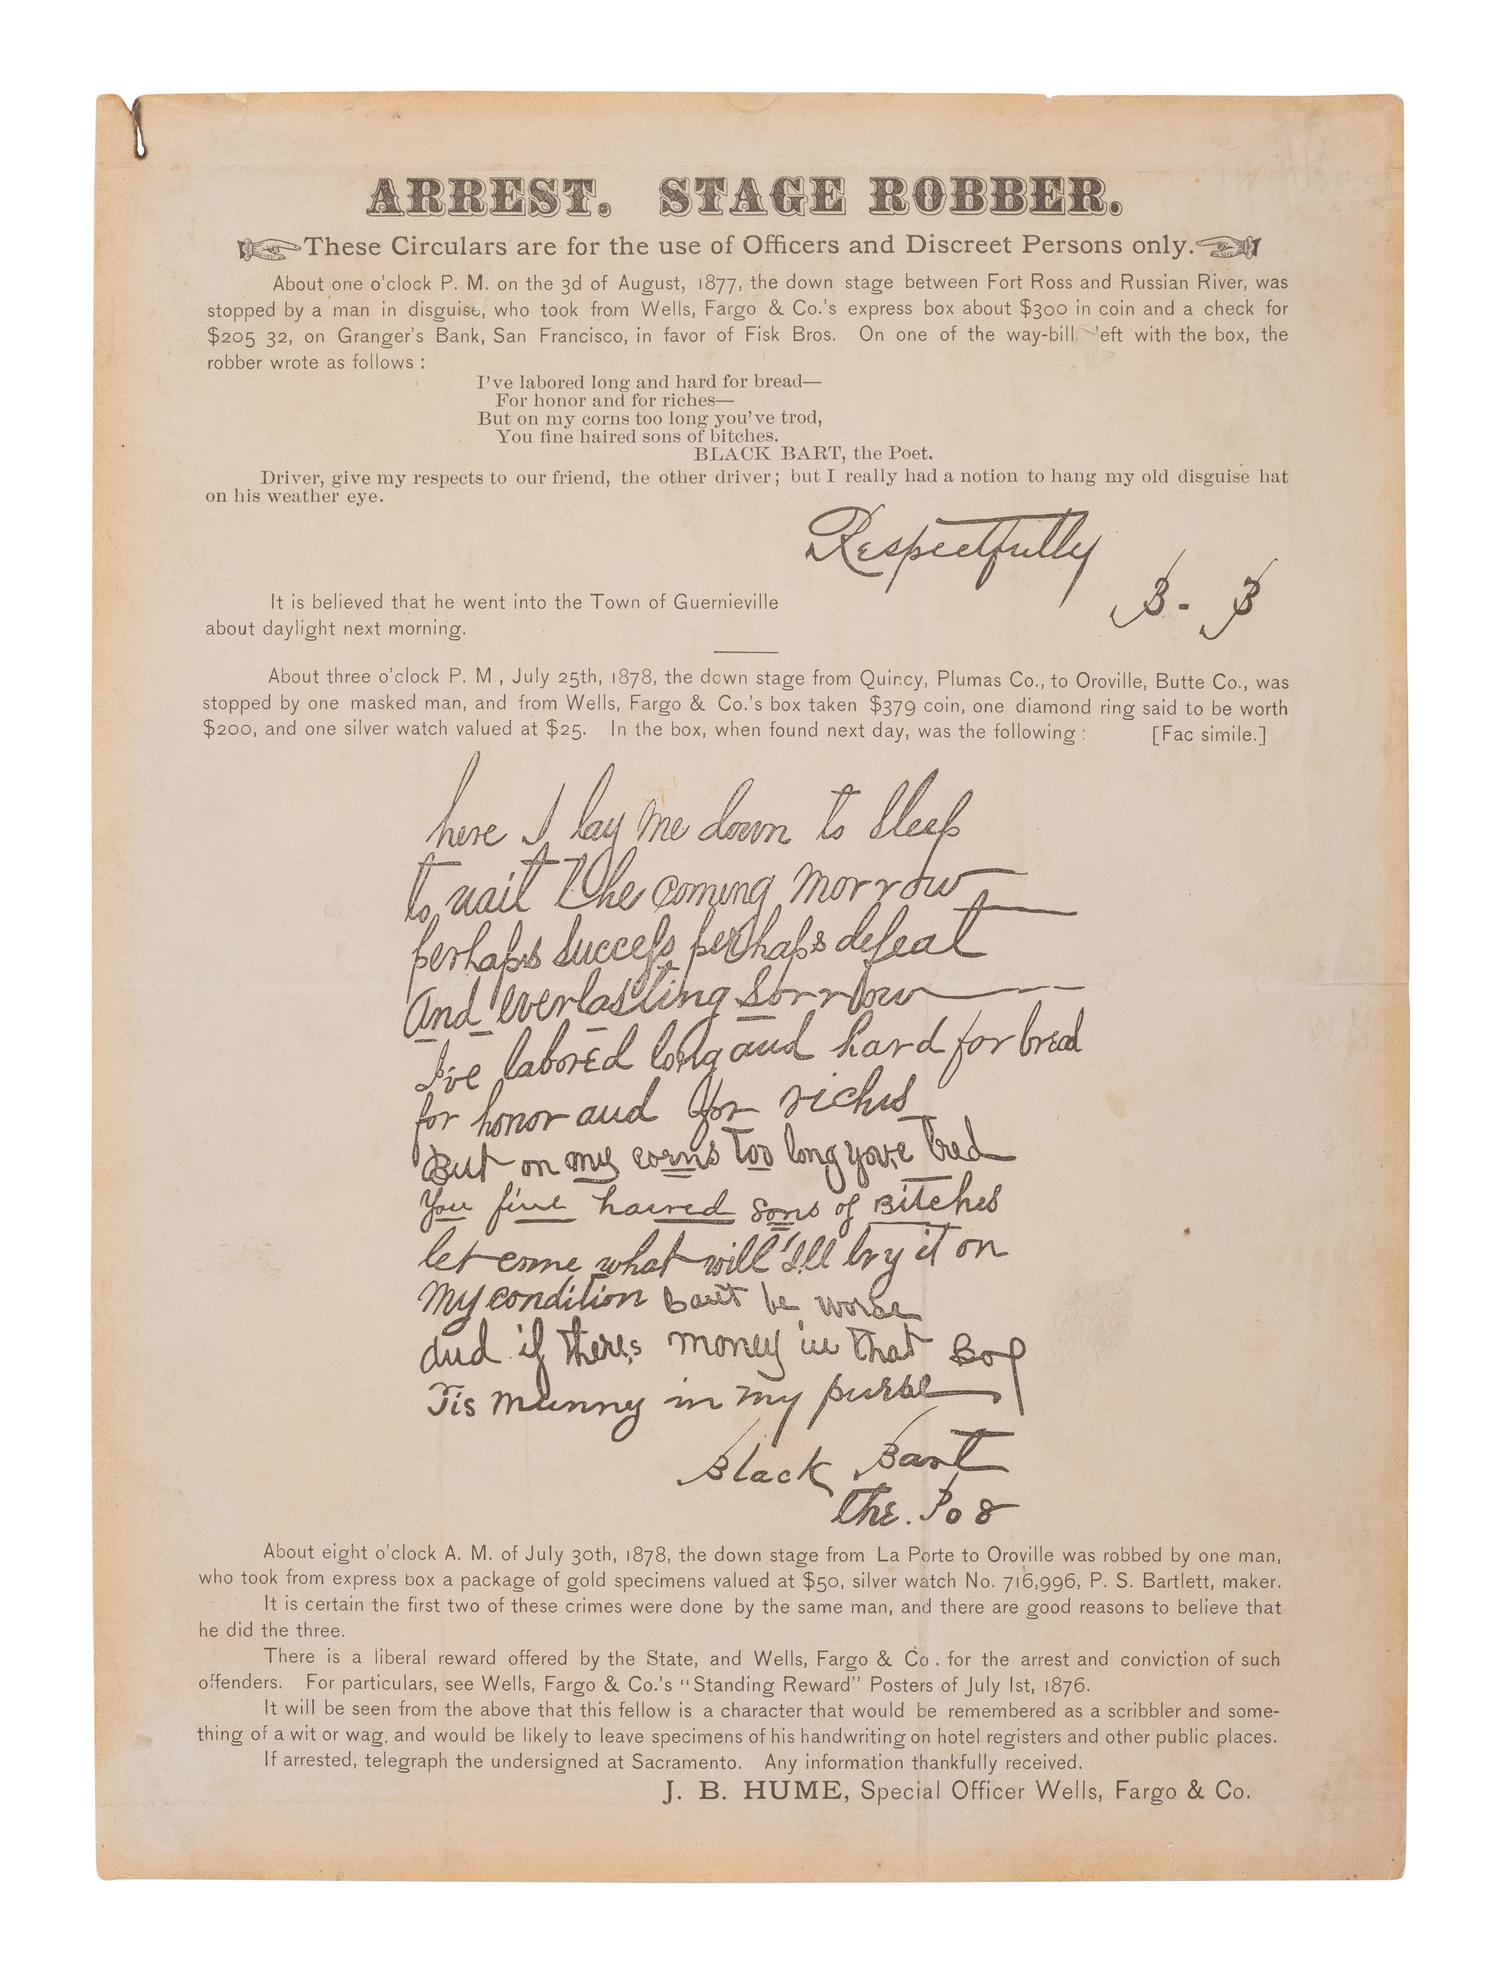 ARREST. STAGE ROBBER.
These Circulars are for the use of Officers and Discreet Persons only.
About one o'clock P. M. on the 3d of August, 1877, the down stage between Fort Ross and Russian River, was
stopped by a man in disguise, who took from Wells, Fargo & Co.'s express box about $300 in coin and a check for
$205 32, on Granger's Bank, San Francisco, in favor of Fisk Bros. On one of the way-bill 'eft with the box, the
robber wrote as follows :
I've labored long and hard for bread—
For honor and for riches—
But on my corns too long you've trod,
You fine haired sons of bitches.
BLACK BART, the Poet.
Driver, give my respects to our friend, the other driver; but I really had a notion to hang my old disguise hat
on his weather eye.
Respectfully
B - B
It is believed that he went into the Town of Guernieville
about daylight next morning.
About three o'clock P. M , July 25th, 1878, the down stage from Quincy, Plumas Co., to Oroville, Butte Co., was
stopped by one masked man, and from Wells, Fargo & Co.'s box taken $379 coin, one diamond ring said to be worth
$200, and one silver watch valued at $25. In the box, when found next day, was the following : [Fac simile.]
here I lay me down to Sleep
to wait the coming morrow
perhaps success perhaps defeat
And everlasting Sorrow
I've labored long and hard for bread
for honor and for riches
But on my corns too long yove tred
You fine haired sons of Bitches
let come what will I'll try it on
My condition can't be worse
and if theres money in that Box
Tis munny in my purse
Black Bart
the Po8
About eight o'clock A. M. of July 30th, 1878, the down stage from La Porte to Oroville was robbed by one man,
who took from express box a package of gold specimens valued at $50, silver watch No. 716,996, P. S. Bartlett, maker.
It is certain the first two of these crimes were done by the same man, and there are good reasons to believe that
he did the three.
There is a liberal reward offered by the State, and Wells, Fargo & Co. for the arrest and conviction of such
offenders. For particulars, see Wells, Fargo & Co.'s "Standing Reward" Posters of July 1st, 1876.
It will be seen from the above that this fellow is a character that would be remembered as a scribbler and some-
thing of a wit or wag, and would be likely to leave specimens of his handwriting on hotel registers and other public places.
If arrested, telegraph the undersigned at Sacramento. Any information thankfully received.
J. B. HUME, Special Officer Wells, Fargo & Co.